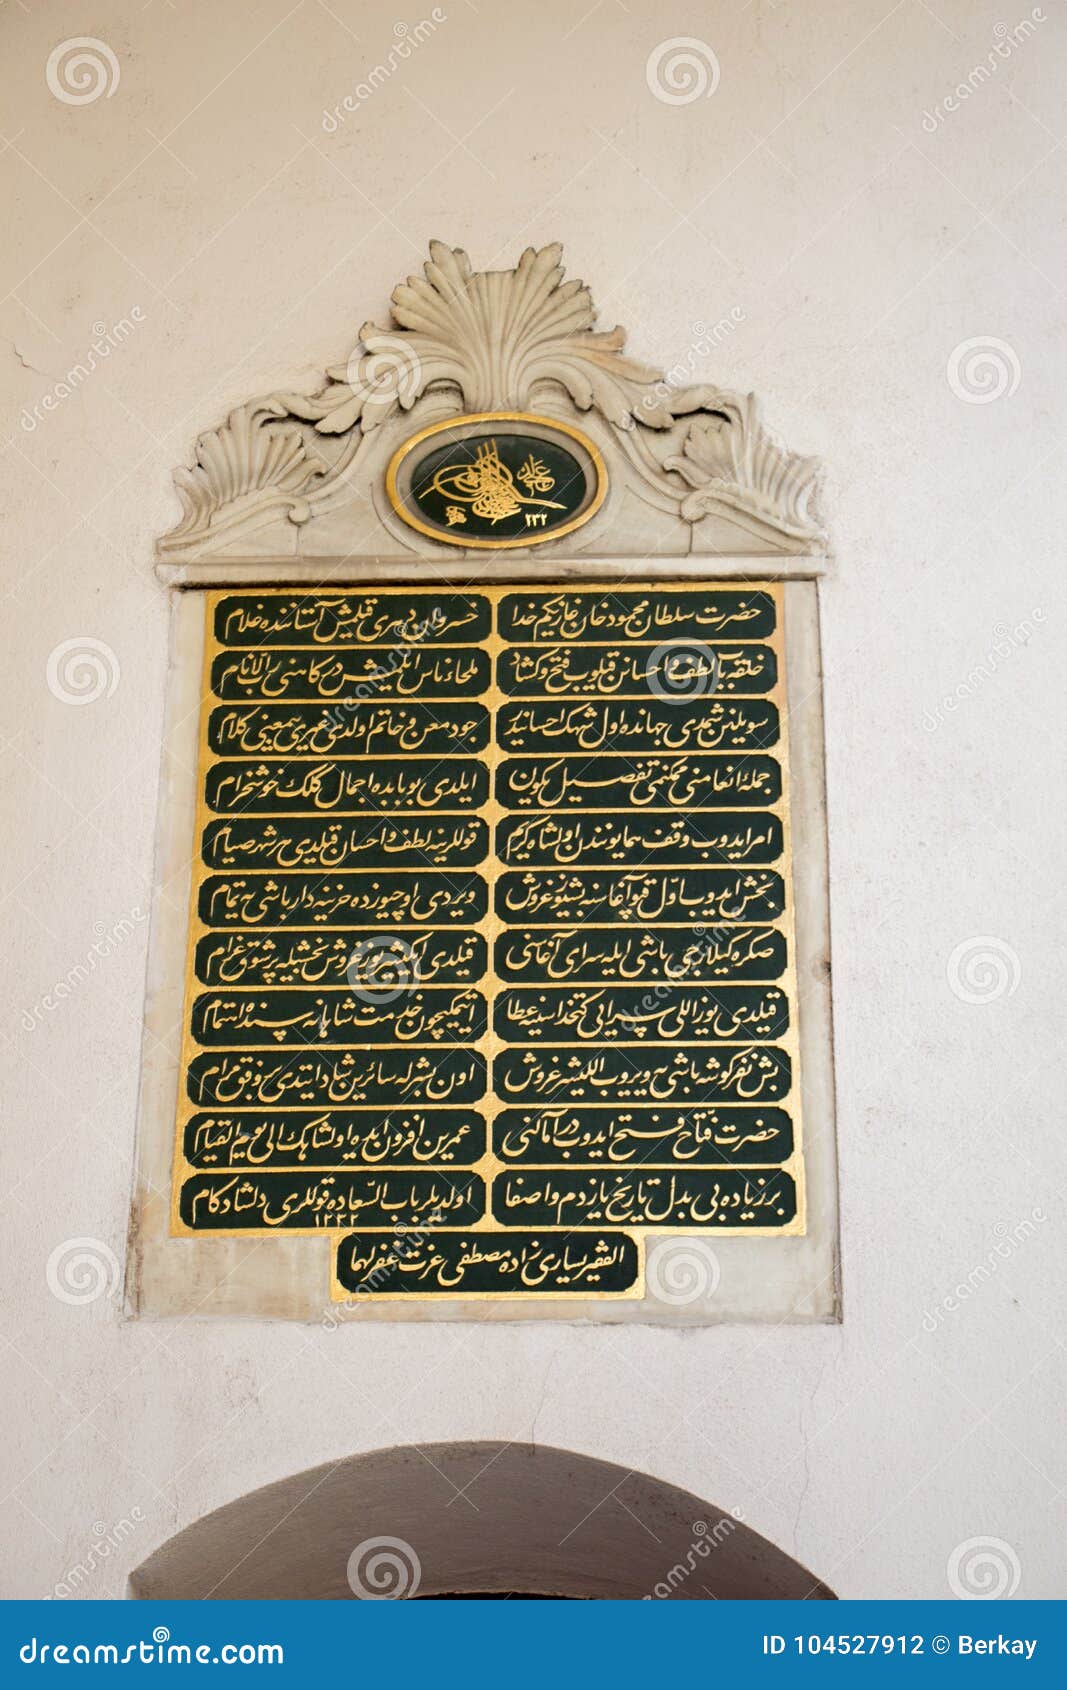 ٢٣٢
حضرت سلطان محمود خان غازیکم خدا
خسروان دهری قیلمش آستاننده غلام
خلقه باب لطف و احسانن قیلوب فتح و کشاد
ملجاء ناس ایلمش درکاهنی رب الانام
سویلنن شمدی جهانده اول شهک احسانیدر
جود معن و خاتم اولدی غیری بیمعنی کلام
جملۀ انعامنی ممکنمی تفصیل
ایلدی بو بابده اجمال کلک خوشخرام
امر ایدوب وقف همایونندن اولشاه کریم
قوللرینه لطف و احسان قیلدی هر شهر صیام
بخش ایدوب اول قپو آغاسنه بشیوز غروش
ویردی اوچیوزده خزینه دار باشی یه تمام
صکره کیلارجی باشی ایله سرای آغاسنی
قیلدی ایکیشر یوز غروش بخشیله
قیلدی یوز اللی سرای کتخداسنه عطا
ایتمکیچون خدمت شاهانه سنده اهتمام
بش نفر کوشه باشی یه ویروب اللیشر غروش
اون بشرله سائرین شاد ایتدی
حضرت فتاح فتح ایدوب در آمالنی
عمرین افزون ایده اولشاهک الی یوم القیام
برزیاده بی بدل تاریخ یازدم واصفا
اولدیلر باب السعاده قوللری دلشادکام
١٢٣٢
الفقیر یساری زاده مصطفی عزت غفر لهما
dreamstime.com
ID 104527912 © Berkay